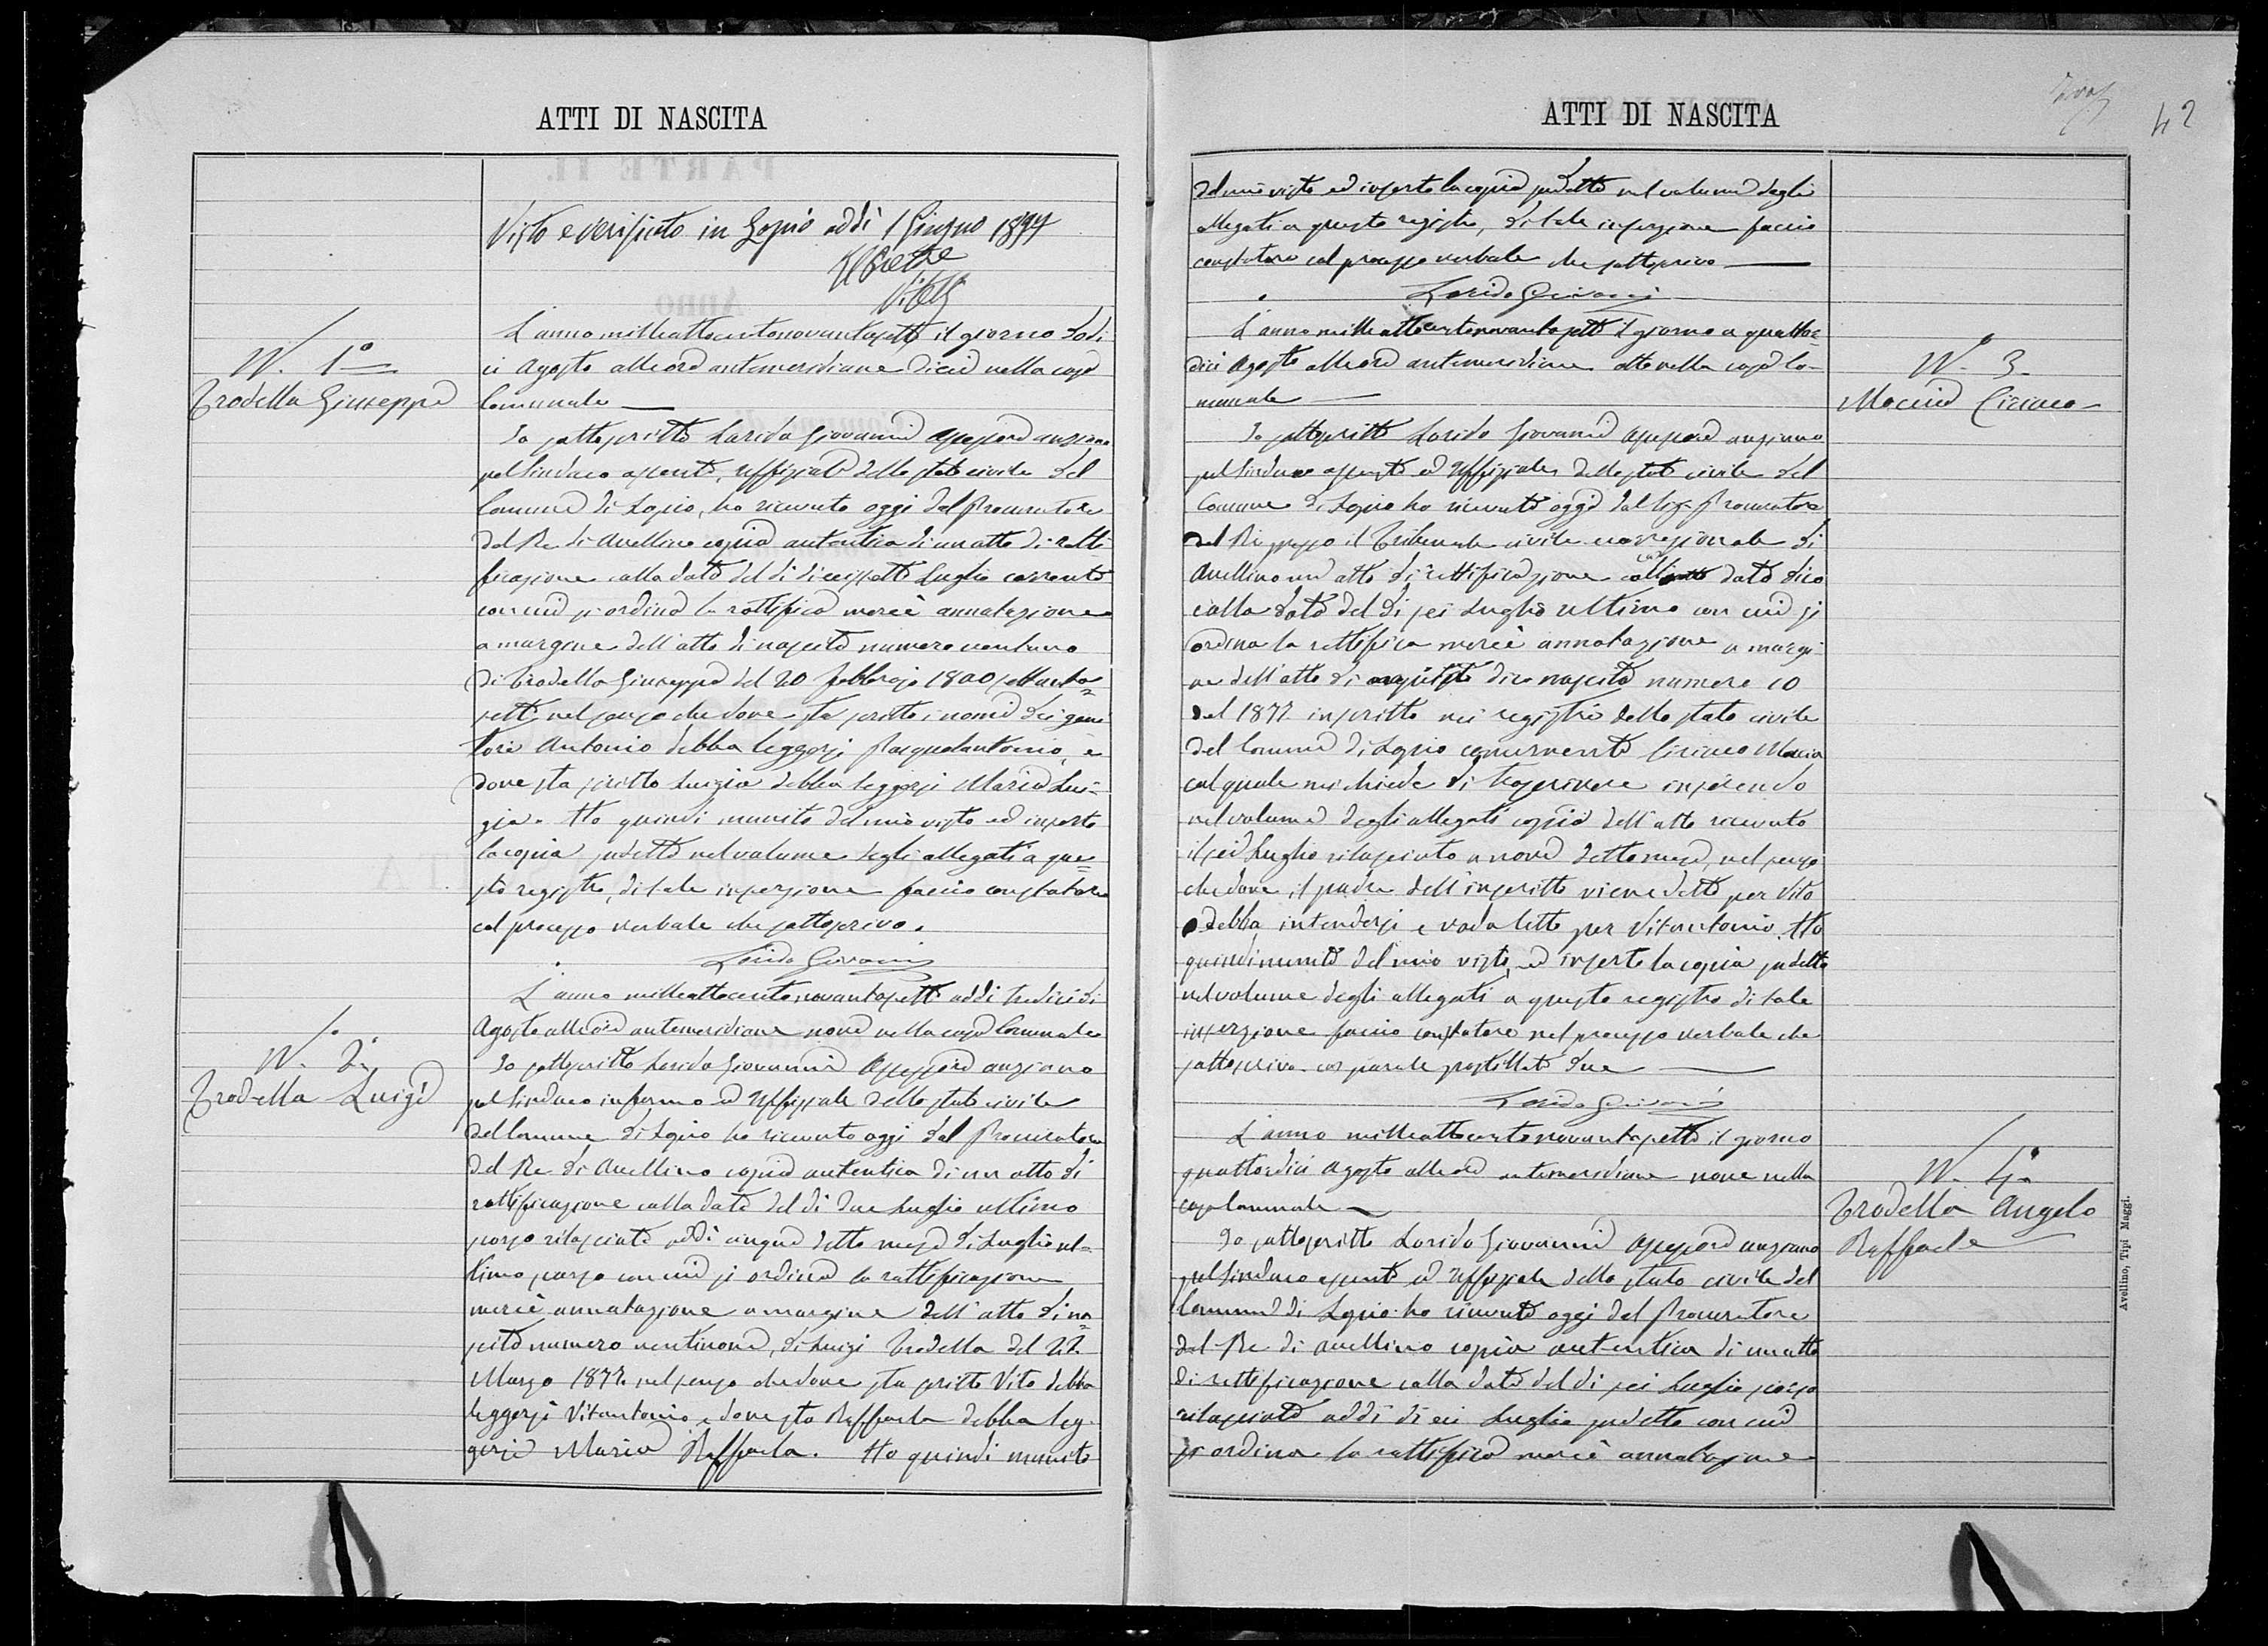 ATTI DI NASCITA
Visto e verificato in Lapio addì 1 Giugno 1897
N. 1°
Trodella Giuseppe
L'anno milleottocentonovantasette il giorno dodi
ci Agosto alle ore antemeridiane dieci nella casa
Comunale
Io sottoscritto Larida Giovanni Assessore anziano
pel Sindaco assente, Uffiziale dello stato civile del
Comune di Lapio, ho ricevuto oggi dal Procuratore
del Re di Avellino copia autentica di un atto di retti
ficazione colla data del dì diecissette Luglio corrente
con cui si ordina la rettifica mercè annotazione
a margine dell'atto di nascita numero ventuno
di Trodella Giuseppe del 20 febbraio 1800 settanta=
sette, nel senso che dove sta scritto i nomi dei geni
tori Antonio debba leggersi Pasqualantonio, e
dove sta scritto Luigia debba leggersi Maria Lui=
gia. Ho quindi munito del mio visto ed inserto
la copia sudetta nel volume degli allegati a que=
sto registro, di tale inserzione faccio constatare
col processo verbale che sottoscrivo.
Larida Giovanni
N. 2.
Trodella Luigi
L'anno milleottocentonovantasette addì tredici di
Agosto alle ore antemeridiane nove nella casa Comunale
Io sottoscritto Larida Giovanni Assessore anziano
pel Sindaco infermo ed Uffiziale dello stato civile
del Comune di Lapio ho ricevuto oggi dal Procuratore
del Re di Avellino copia autentica di un atto di
rettificazione colla data del dì due Luglio ultimo
scorso rilasciata addì cinque detto mese di Luglio ul=
timo scorso con cui si ordina la rettificazione
mercè annotazione a margine dell'atto di na=
scita numero ventinove, di Luigi Trodella del 22
Marzo 1877 nel senso che dove sta scritto Vito debba
leggersi Vitantonio e dove sta Raffaela debba leg-
gersi Maria Raffaela. Ho quindi munito
ATTI DI NASCITA
42
del mio visto ed inserto la copia sudetta nel volume degli
allegati a questo registro, di tale inserzione faccio
constatare col processo verbale che sottoscrivo
Larida Giovanni
N. 3.
Moccia Ciriaco
L'anno milleottocentonovantasette il giorno a quattor=
dici Agosto alle ore antemeridiane otto nella casa Co-
munale
Io sottoscritto Larida Giovanni Assessore anziano
pel Sindaco assente ed Uffiziale dello stato civile del
Comune di Lapio ho ricevuto oggi dal Sig. Procuratore
del Re presso il Tribunale civile e correzionale di
Avellino un atto di rettificazione data dico
colla data del dì sei Luglio ultimo con cui si
ordina la rettifica mercè annotazione a margi
ne dell'atto di dico nascita numero 10
del 1877 inscritto nei registri dello stato civile
del Comune di Lapio concernente Ciriaco Moccia
col quale mi chiede di trascrivere inserendo
nel volume degli allegati copia dell'atto ricevuto
il sei Luglio rilasciato a nove detto mese, nel senso
che dove il padre dell'inscritto viene detto per Vito
debba intendersi e vada letto per Vitantonio. Ho
quindi munito del mio visto, ed inserto la copia sudetta
nel volume degli allegati a questo registro di tale
inserzione faccio constatare nel processo verbale che
sottoscrivo con parole postillate due
Larida Giovanni
N. 4.
Trodella Angelo
Raffaele
L'anno milleottocentonovantasette il giorno
quattordici Agosto alle ore antemeridiane nove nella
casa Comunale
Io sottoscritto Larida Giovanni Assessore anziano
pel Sindaco assente ed Uffiziale dello stato civile del
Comune di Lapio ho ricevuto oggi dal Procuratore
del Re di Avellino copia autentica di un atto
di rettificazione colla data del dì sei Luglio scorso
rilasciato addì dieci Luglio sudetto con cui
si ordina la rettifica mercè annotazione
Avellino, Tipi Maggi.